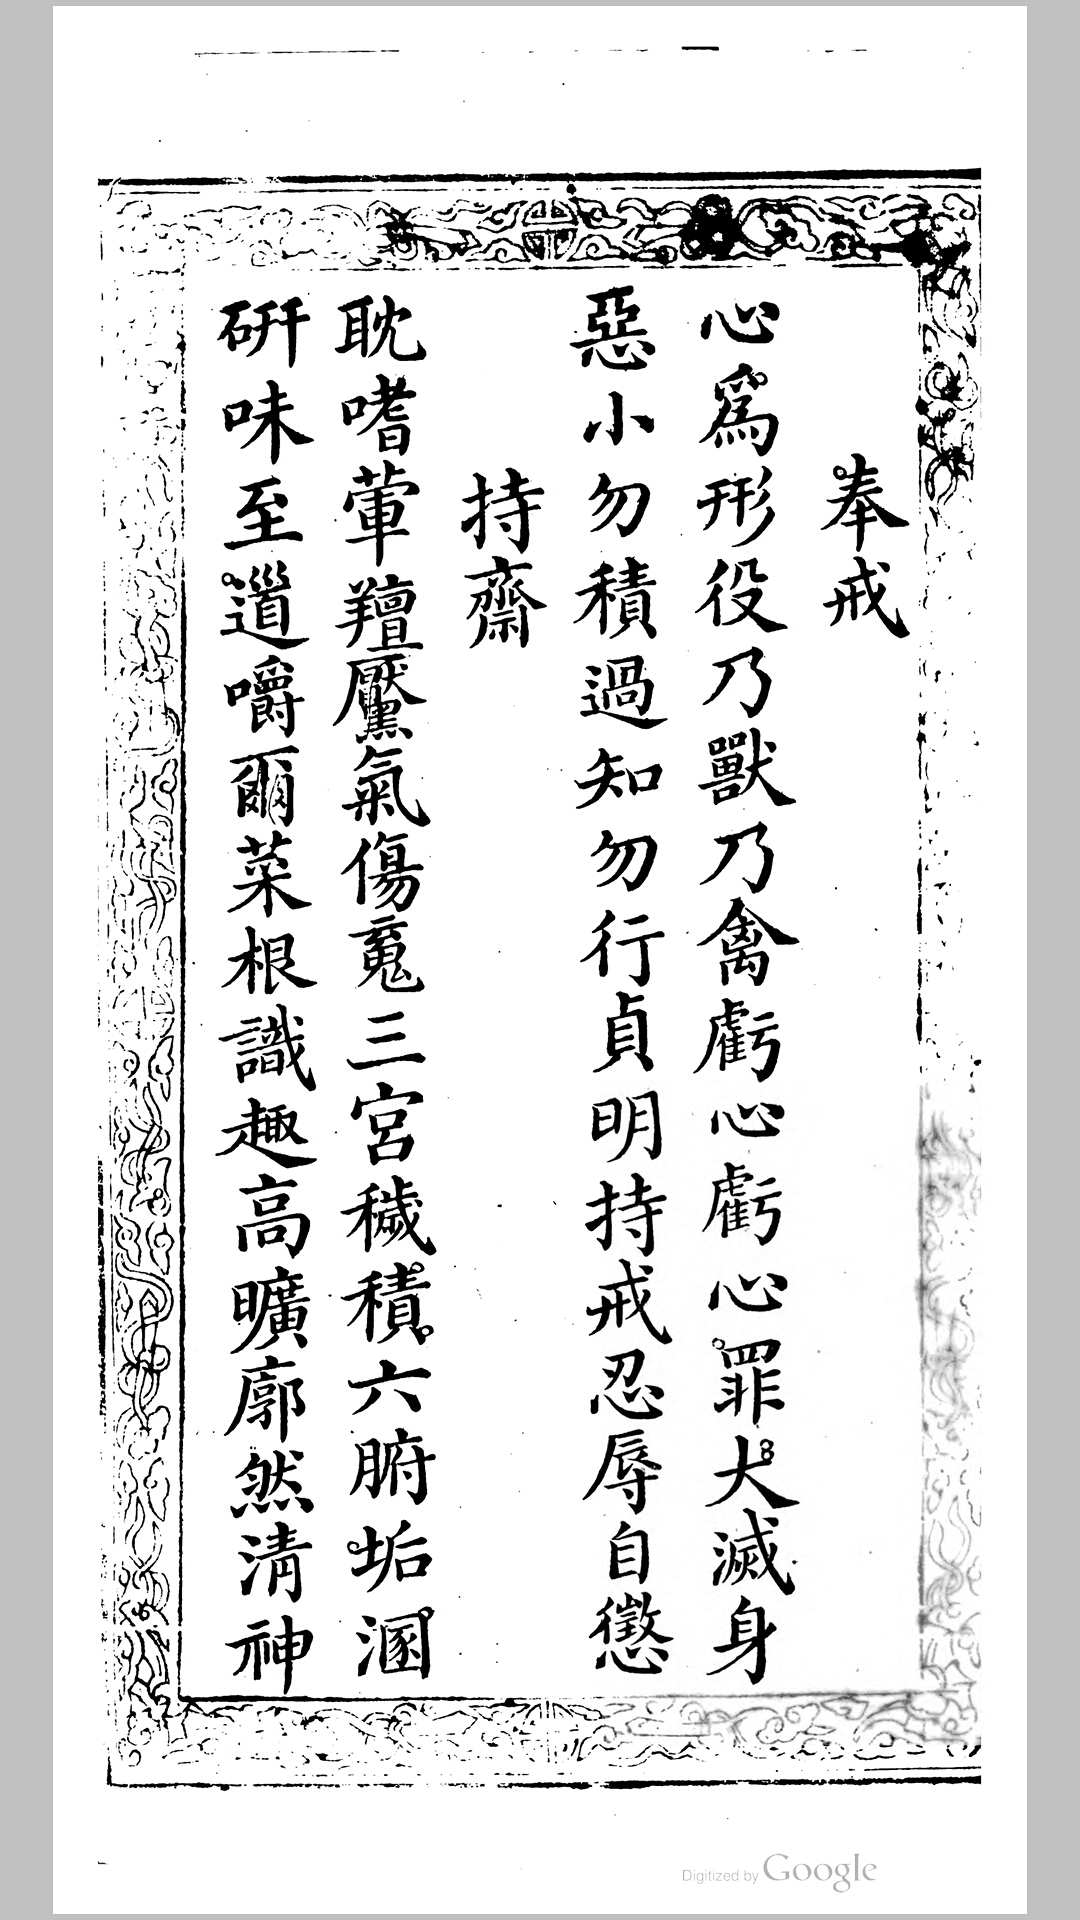 奉戒
心爲形役乃獸乃禽虧心虧心罪大滅身
惡小勿積過知勿行貞明持戒忍辱自懲
持齋
耽嗜葷羶魘氣傷䰟三宮穢積六腑垢溷
硏味至道嚼爾菜根識趣高曠廓然清神
Digitized by Google